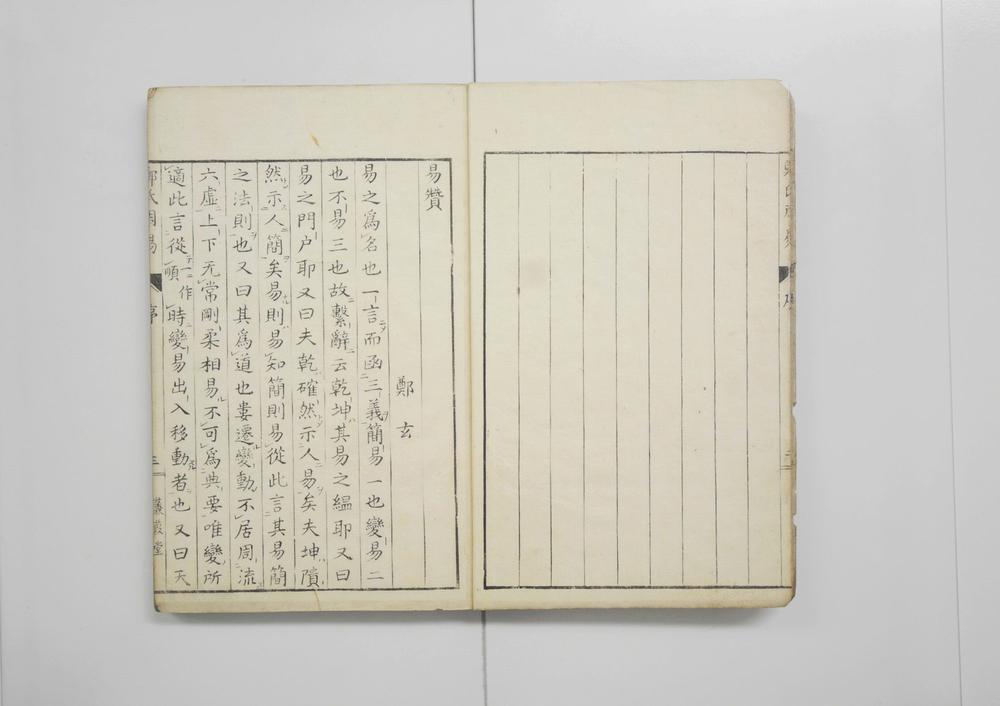 易贊
鄭玄
易之爲名也一言而函三義簡易一也變易二
也不易三也故繫辭云乾坤其易之縕耶又曰
易之門户耶又曰夫乾確然示人易矣夫坤隤
然示人簡矣易則易知簡則易從此言其易簡
之法則也又曰其爲道也婁遷變動不居周流
六虛上下无常剛柔相易不可爲典要唯變所
適此言從順一作時變易出入移動者也又曰天
鄭氏周易 序 三